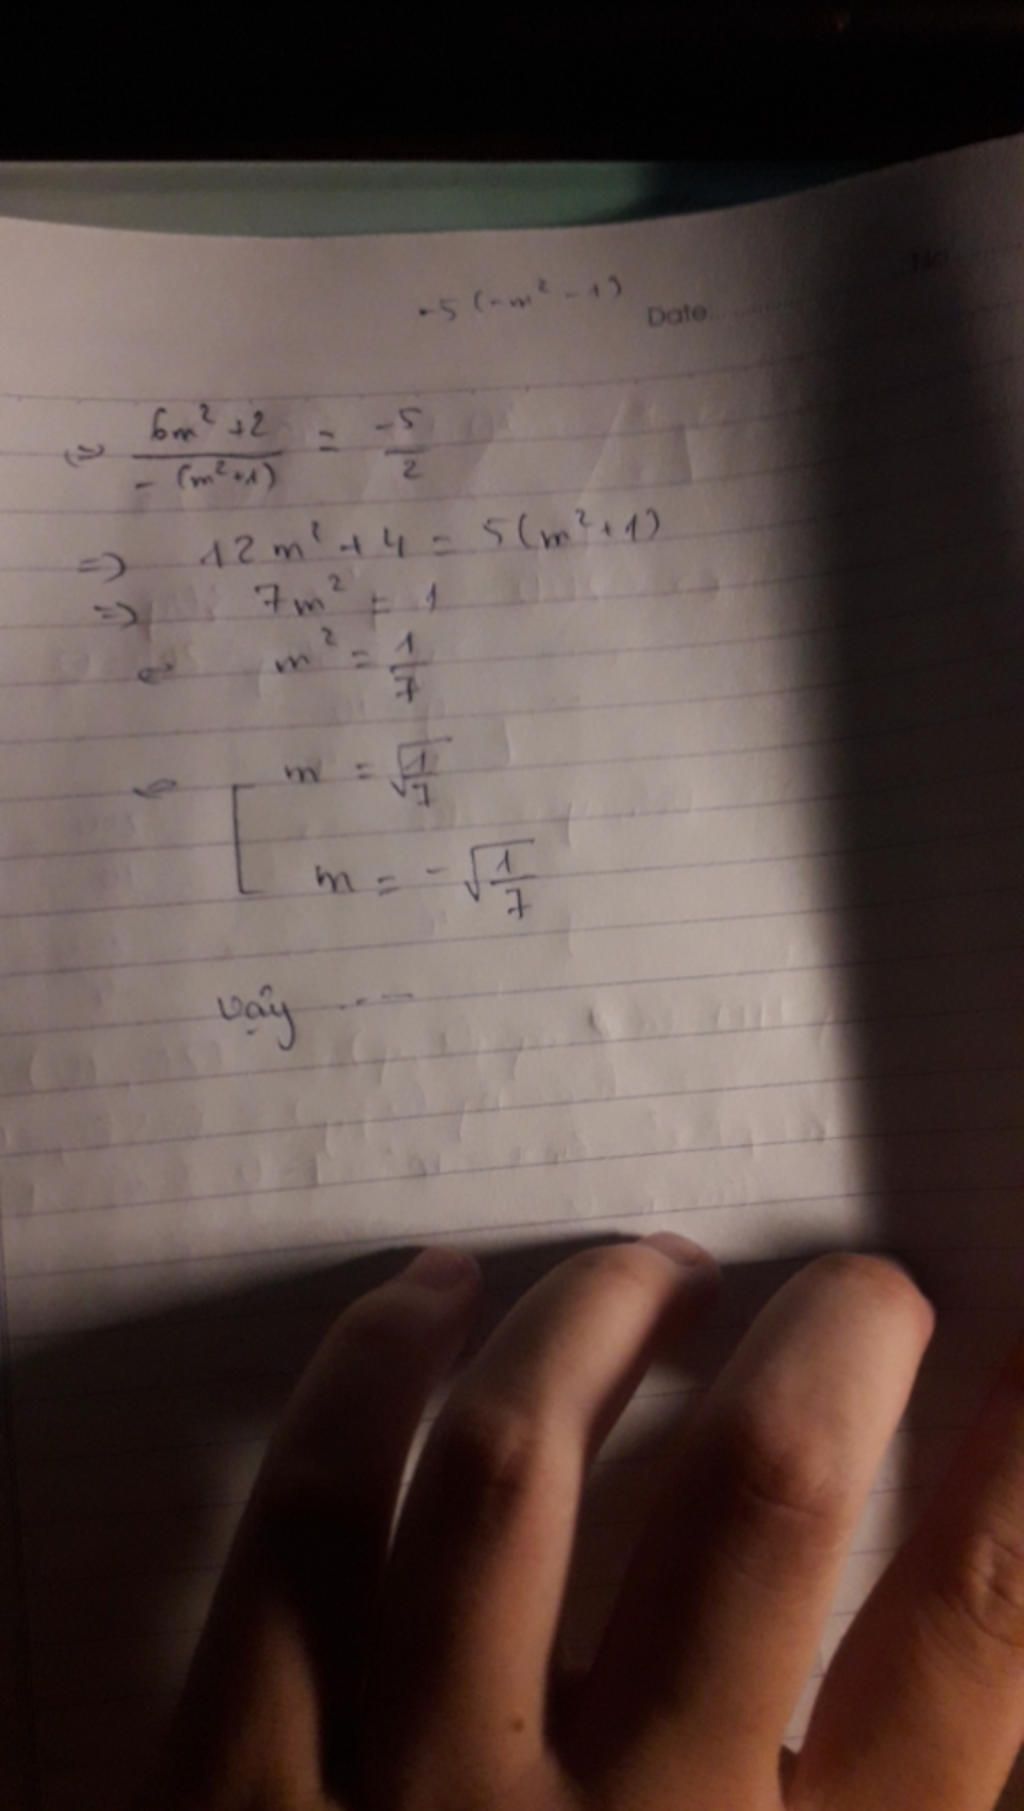 No
-5(-m² - 1) Date
⇒ (6m² + 2)/(-(m²+1)) = -5/2
⇒ 12m² + 4 = 5(m²+1)
⇒ 7m² = 1
⇔ m² = 1/7
⇔ [ m = √(1/7)
m = -√(1/7)
Vậy ---